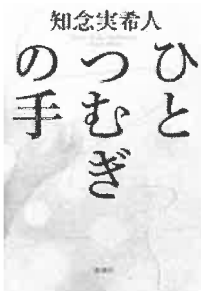 知念実希人
ひと
つむぎ
の手